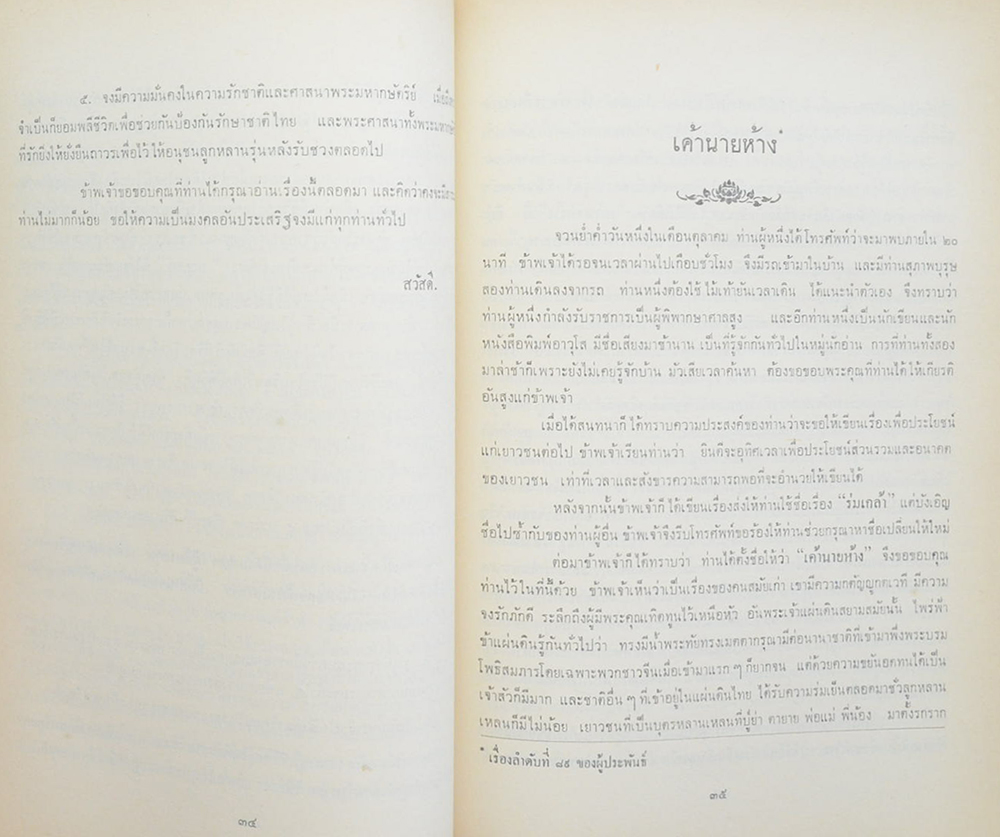 ๕. จงมีความมั่นคงในความรักชาติและศาสนาพระมหากษัตริย์ เมื่อถึง
จำเป็นก็ยอมพลีชีวิตเพื่อช่วยกันป้องกันรักษาชาติไทย และพระศาสนาทั้งพระมหา
ที่รักยิ่งให้ยั่งยืนถาวรเพื่อไว้ให้อนุชนลูกหลานรุ่นหลังรับช่วงตลอดไป
ข้าพเจ้าขอขอบคุณที่ท่านได้กรุณาอ่านเรื่องนี้ตลอดมา และคิดว่าคงจะมี
ท่านไม่มากก็น้อย ขอให้ความเป็นมงคลอันประเสริฐจงมีแก่ทุกท่านทั่วไป
สวัสดี.
๓๔
เค้านายห้าง*
จวนย่ำค่ำวันหนึ่งในเดือนตุลาคม ท่านผู้หนึ่งได้โทรศัพท์ว่าจะมาพบภายใน ๒๐
นาที ข้าพเจ้าได้รอจนเวลาผ่านไปเกือบชั่วโมง จึงมีรถเข้ามาในบ้าน และมีท่านสุภาพบุรุษ
สองท่านเดินลงจากรถ ท่านหนึ่งต้องใช้ไม้เท้ายันเวลาเดิน ได้แนะนำตัวเอง จึงทราบว่า
ท่านผู้หนึ่งกำลังรับราชการเป็นผู้พิพากษาศาลสูง และอีกท่านหนึ่งเป็นนักเขียนและนัก
หนังสือพิมพ์อาวุโส มีชื่อเสียงมาช้านาน เป็นที่รู้จักกันทั่วไปในหมู่นักอ่าน การที่ท่านทั้งสอง
มาล่าช้าก็เพราะยังไม่เคยรู้จักบ้าน มัวเสียเวลาค้นหา ต้องขอขอบพระคุณที่ท่านได้ให้เกียรติ
อันสูงแก่ข้าพเจ้า
เมื่อได้สนทนาก็ได้ทราบความประสงค์ของท่านว่าจะขอให้เขียนเรื่องเพื่อประโยชน์
แก่เยาวชนต่อไป ข้าพเจ้าเรียนท่านว่า ยินดีจะอุทิศเวลาเพื่อประโยชน์ส่วนรวมและอนาคต
ของเยาวชน เท่าที่เวลาและสังขารความสามารถพอที่จะอำนวยให้เขียนได้
หลังจากนั้นข้าพเจ้าก็ได้เขียนเรื่องส่งให้ท่านใช้ชื่อเรื่อง “ร่มเกล้า” แต่บังเอิญ
ชื่อไปซ้ำกับของท่านผู้อื่น ข้าพเจ้าจึงรีบโทรศัพท์ขอร้องให้ท่านช่วยกรุณาหาชื่อเปลี่ยนให้ใหม่
ต่อมาข้าพเจ้าก็ได้ทราบว่า ท่านได้ตั้งชื่อให้ว่า “เค้านายห้าง” จึงขอขอบคุณ
ท่านไว้ในที่นี้ด้วย ข้าพเจ้าเห็นว่าเป็นเรื่องของคนสมัยเก่า เขามีความกตัญญูกตเวที มีความ
จงรักภักดี ระลึกถึงผู้มีพระคุณเทิดทูนไว้เหนือหัว อันพระเจ้าแผ่นดินสยามสมัยนั้น ไพร่ฟ้า
ข้าแผ่นดินรู้กันทั่วไปว่า ทรงมีน้ำพระทัยทรงเมตตากรุณามีต่อนานาชาติที่เข้ามาพึ่งพระบรม
โพธิสมภารโดยเฉพาะพวกชาวจีนเมื่อเข้ามาแรก ๆ ก็ยากจน แต่ด้วยความขยันอดทนได้เป็น
เจ้าสัวก็มีมาก และชาติอื่น ๆ ที่เข้าอยู่ในแผ่นดินไทย ได้รับความร่มเย็นตลอดมาชั่วลูกหลาน
เหลนก็มีไม่น้อย เยาวชนที่เป็นบุตรหลานเหลนที่ปู่ย่า ตายาย พ่อแม่ พี่น้อง มาตั้งรกราก
* เรื่องลำดับที่ ๘๙ ของผู้ประพันธ์
๓๕